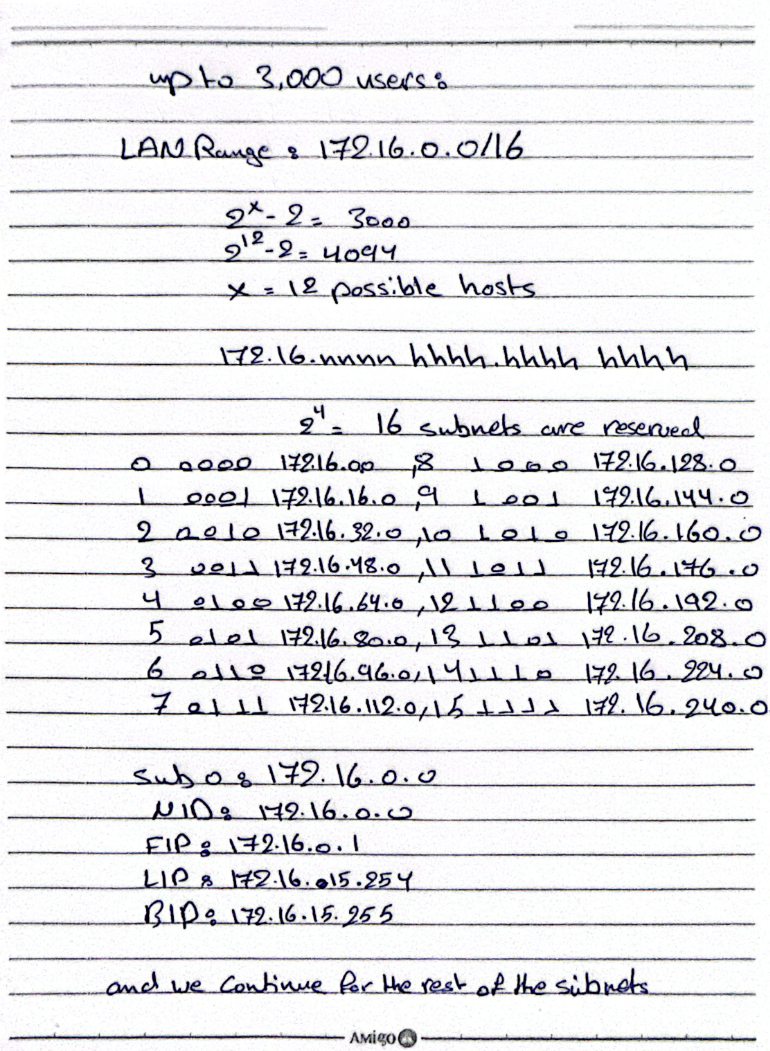 up to 3,000 users:
LAN Range : 172.16.0.0/16
2^x - 2 = 3000
2^12 - 2 = 4094
x = 12 possible hosts
172.16.nnnn hhhh.hhhh hhhh
2^4 = 16 subnets are reserved
0 0000 172.16.00 ,8 1000 172.16.128.0
1 0001 172.16.16.0 ,9 1001 172.16.144.0
2 0010 172.16.32.0 ,10 1010 172.16.160.0
3 0011 172.16.48.0 ,11 1011 172.16.176.0
4 0100 172.16.64.0 ,12 1100 172.16.192.0
5 0101 172.16.80.0, 13 1101 172.16.208.0
6 0110 172.16.96.0, 14 1110 172.16.224.0
7 0111 172.16.112.0, 15 1111 172.16.240.0
Sub 0 : 172.16.0.0
NID : 172.16.0.0
FIP : 172.16.0.1
LIP : 172.16.015.254
BIP : 172.16.15.255
and we continue for the rest of the subnets
AMigo